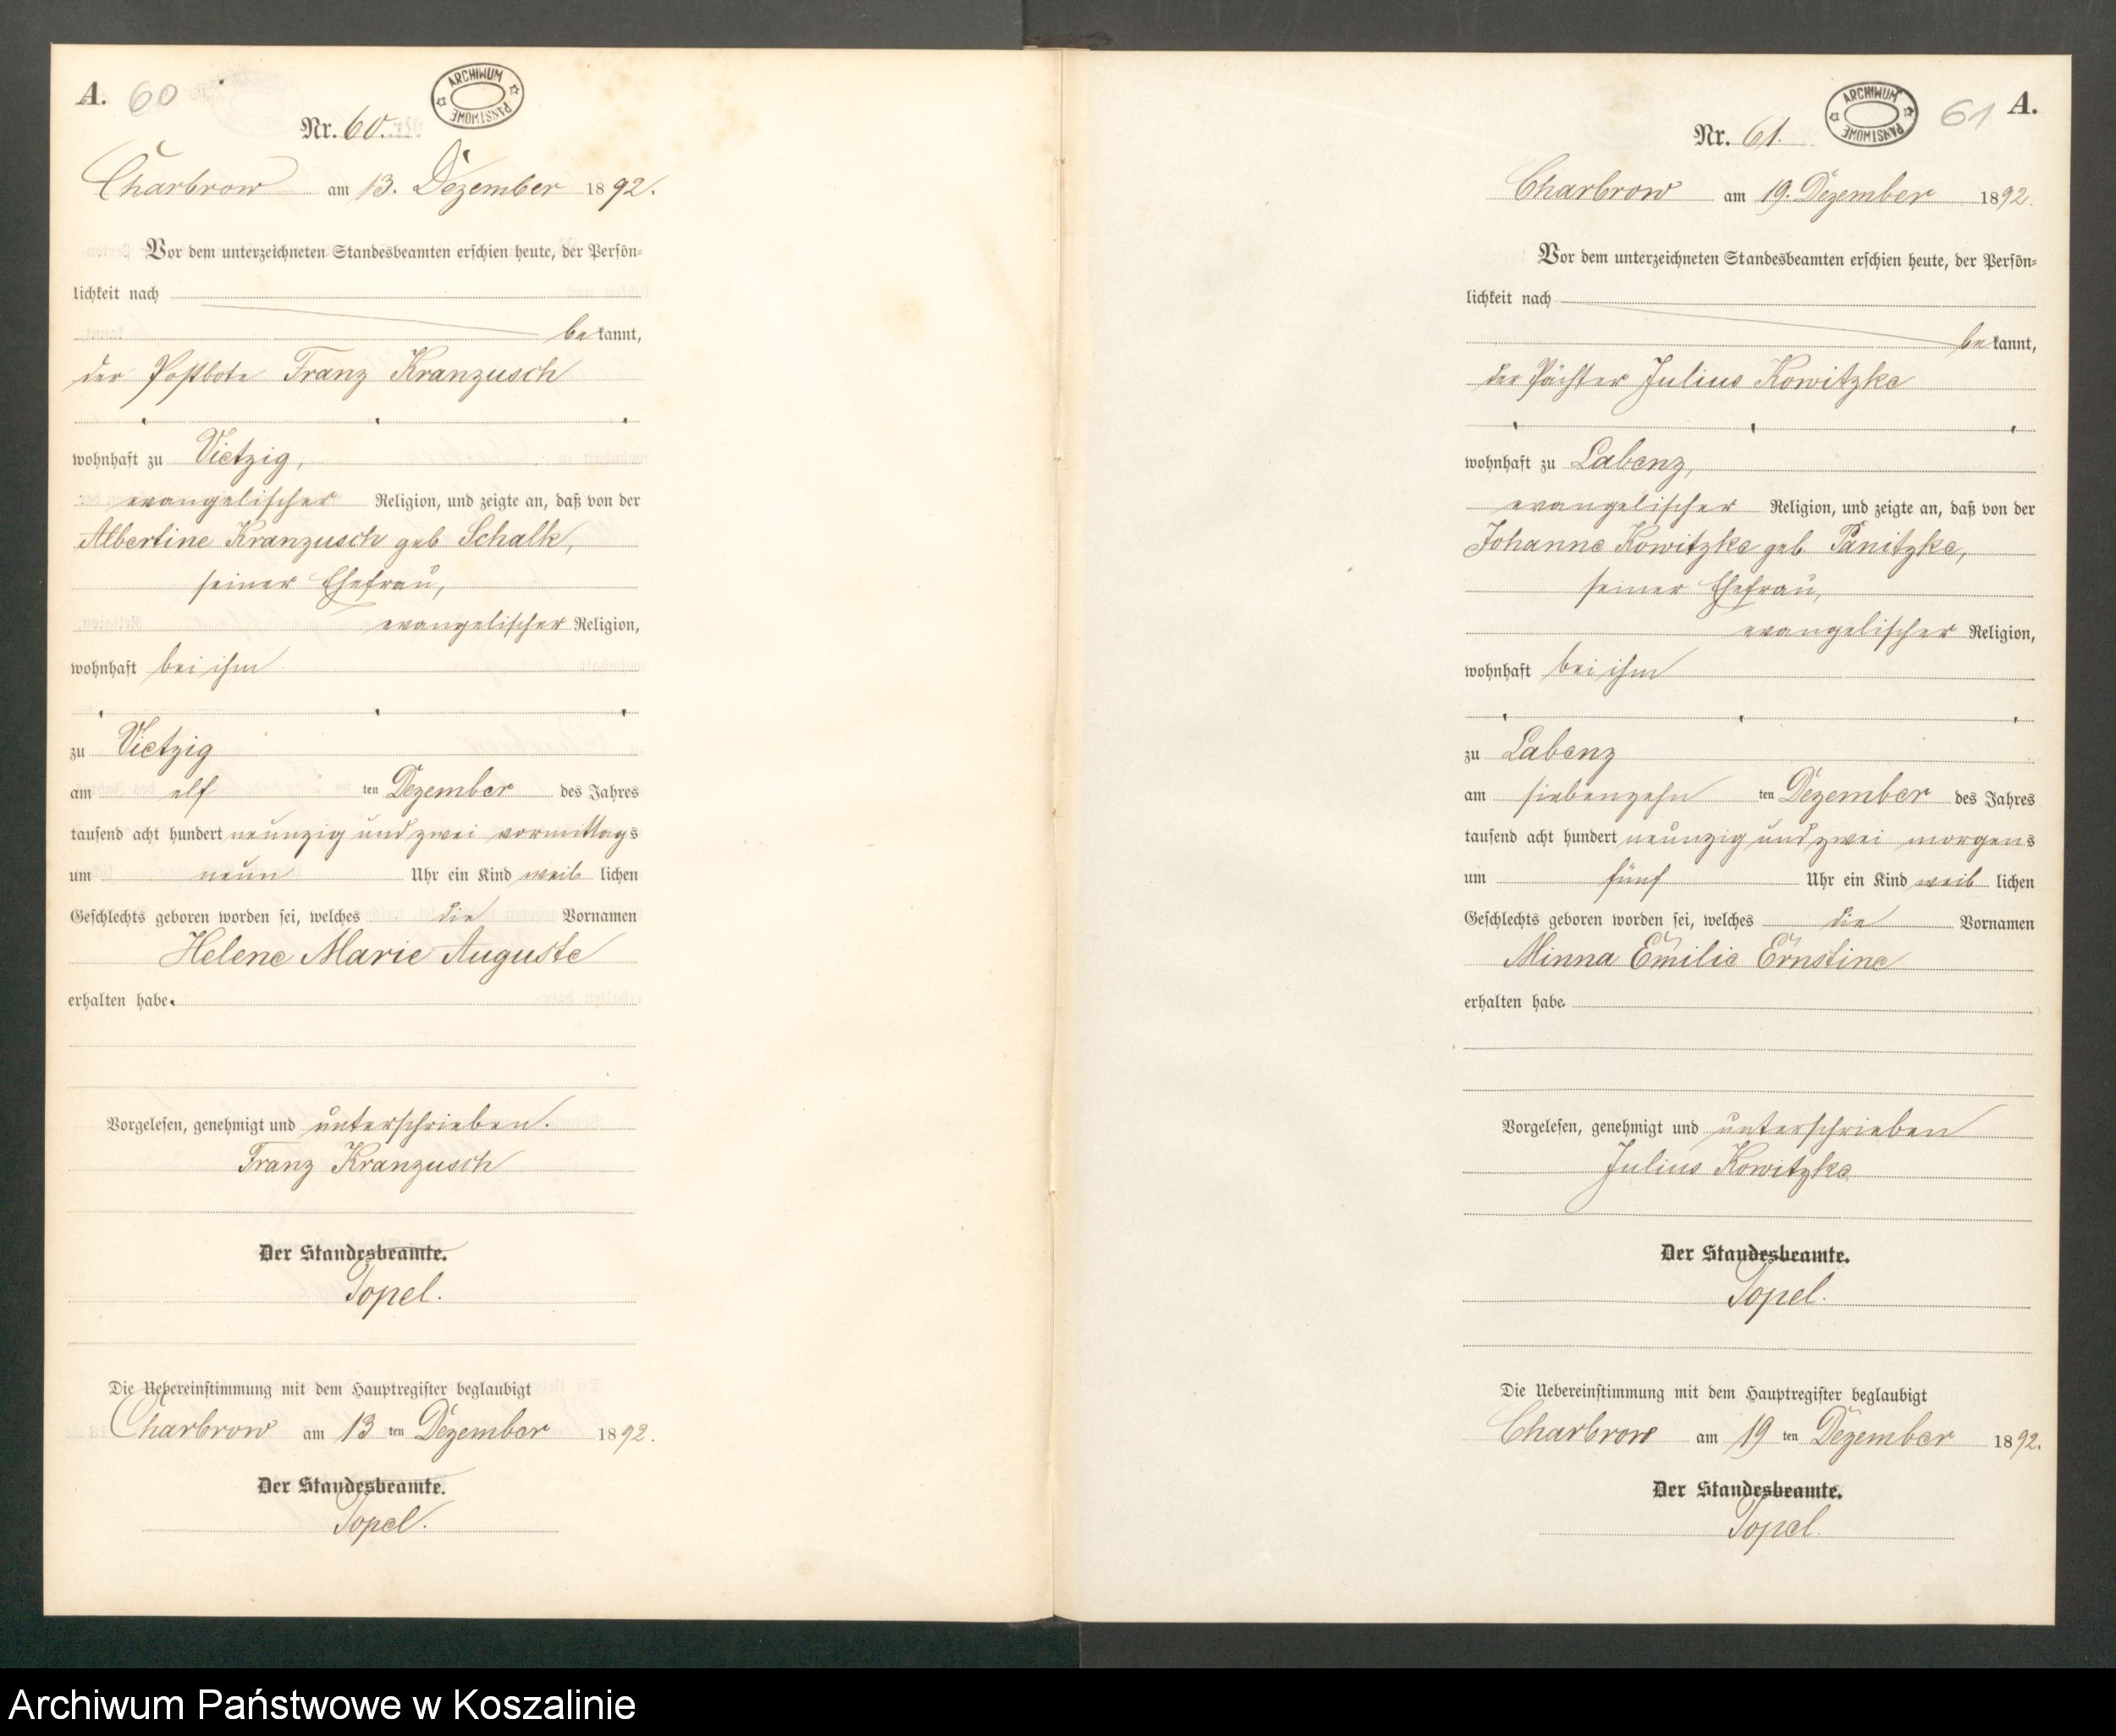 A. 60
ARCHIWUM PAŃSTWOWE
Nr. 60.
Charbrow am 13. Dezember 1892.
Vor dem unterzeichneten Standesbeamten erschien heute, der Persön=
lichkeit nach
bekannt,
der Postbote Franz Kranzusch
wohnhaft zu Vietzig,
evangelischer Religion, und zeigte an, daß von der
Albertine Kranzusch geb Schalk,
seiner Ehefrau,
evangelischer Religion,
wohnhaft bei ihm
zu Vietzig
am elf ten Dezember des Jahres
tausend acht hundert neunzig und zwei vormittags
um neun Uhr ein Kind weiblichen
Geschlechts geboren worden sei, welches die Vornamen
Helene Marie Auguste
erhalten habe.
Vorgelesen, genehmigt und unterschrieben.
Franz Kranzusch
Der Standesbeamte.
Topel.
Die Uebereinstimmung mit dem Hauptregister beglaubigt
Charbrow am 13 ten Dezember 1892.
Der Standesbeamte.
Topel.
ARCHIWUM PAŃSTWOWE
61 A.
Nr. 61.
Charbrow am 19. Dezember 1892.
Vor dem unterzeichneten Standesbeamten erschien heute, der Persön=
lichkeit nach
bekannt,
der Pächter Julius Kowitzke
wohnhaft zu Labenz,
evangelischer Religion, und zeigte an, daß von der
Johanne Kowitzke geb. Panitzke,
seiner Ehefrau,
evangelischer Religion,
wohnhaft bei ihm
zu Labenz
am siebenzehn ten Dezember des Jahres
tausend acht hundert neunzig und zwei morgens
um fünf Uhr ein Kind weiblichen
Geschlechts geboren worden sei, welches die Vornamen
Minna Emilie Ernstine
erhalten habe
Vorgelesen, genehmigt und unterschrieben
Julius Kowitzke
Der Standesbeamte.
Topel.
Die Uebereinstimmung mit dem Hauptregister beglaubigt
Charbrow am 19 ten Dezember 1892.
Der Standesbeamte.
Topel.
Archiwum Państwowe w Koszalinie